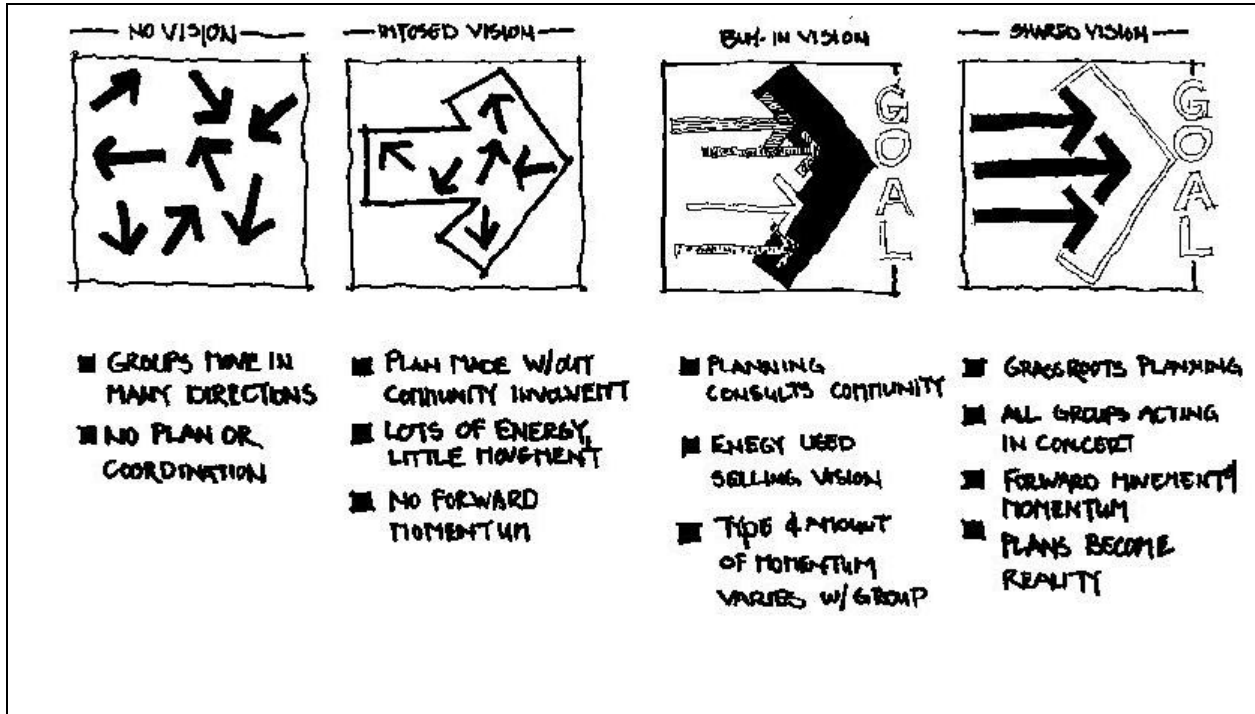 NO VISION
GROUPS MOVE IN
MANY DIRECTIONS
NO PLAN OR
COORDINATION
IMPOSED VISION
PLAN MADE W/OUT
COMMUNITY INVOLVEMT
LOTS OF ENERGY,
LITTLE MOVEMENT
NO FORWARD
MOMENTUM
BUY-IN VISION
GOAL
PLANNING
CONSULTS COMMUNITY
ENEGY USED
SELLING VISION
TYPE & AMOUNT
OF MOMENTUM
VARIES W/ GROUP
SHARED VISION
GOAL
GRASSROOTS PLANNING
ALL GROUPS ACTING
IN CONCERT
FORWARD MOVEMENT &
MOMENTUM
PLANS BECOME
REALITY